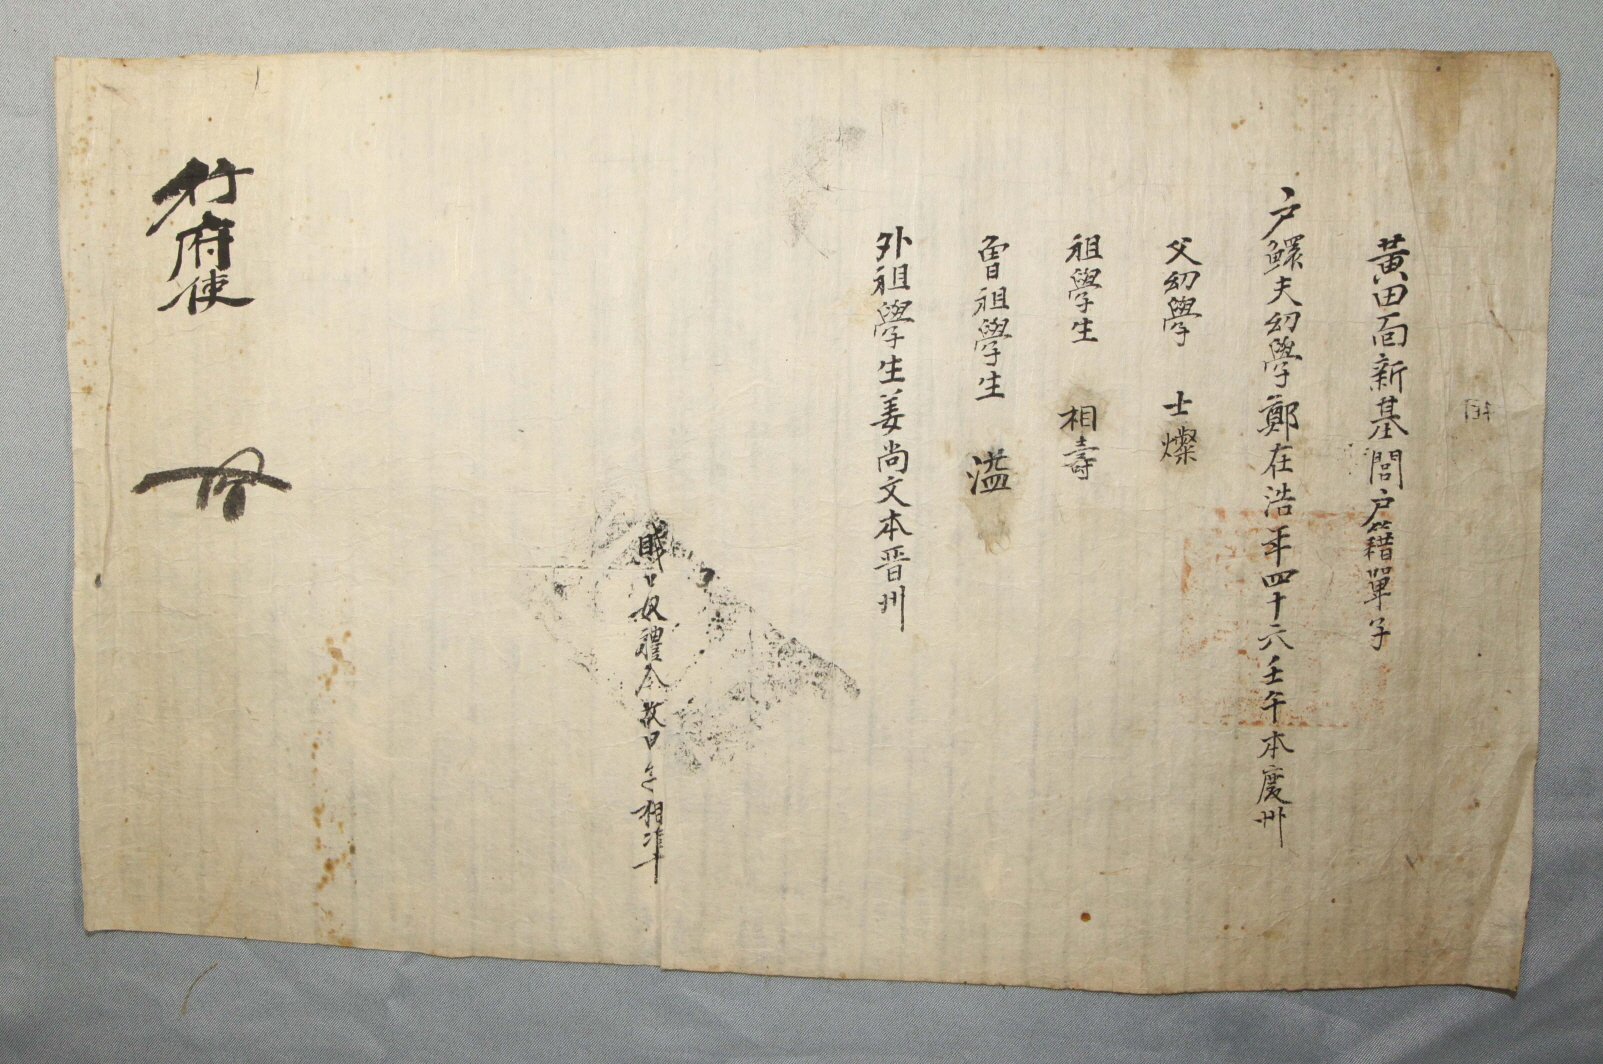 黃田面新基閭戶籍單子
戶鰥夫幼學鄭在浩年四十六壬午本慶州
父幼學 士燦
祖學生 相壽
曾祖學生 溢
外祖學生姜尚文本晋州
賤口奴禮今故口 相準
行府使